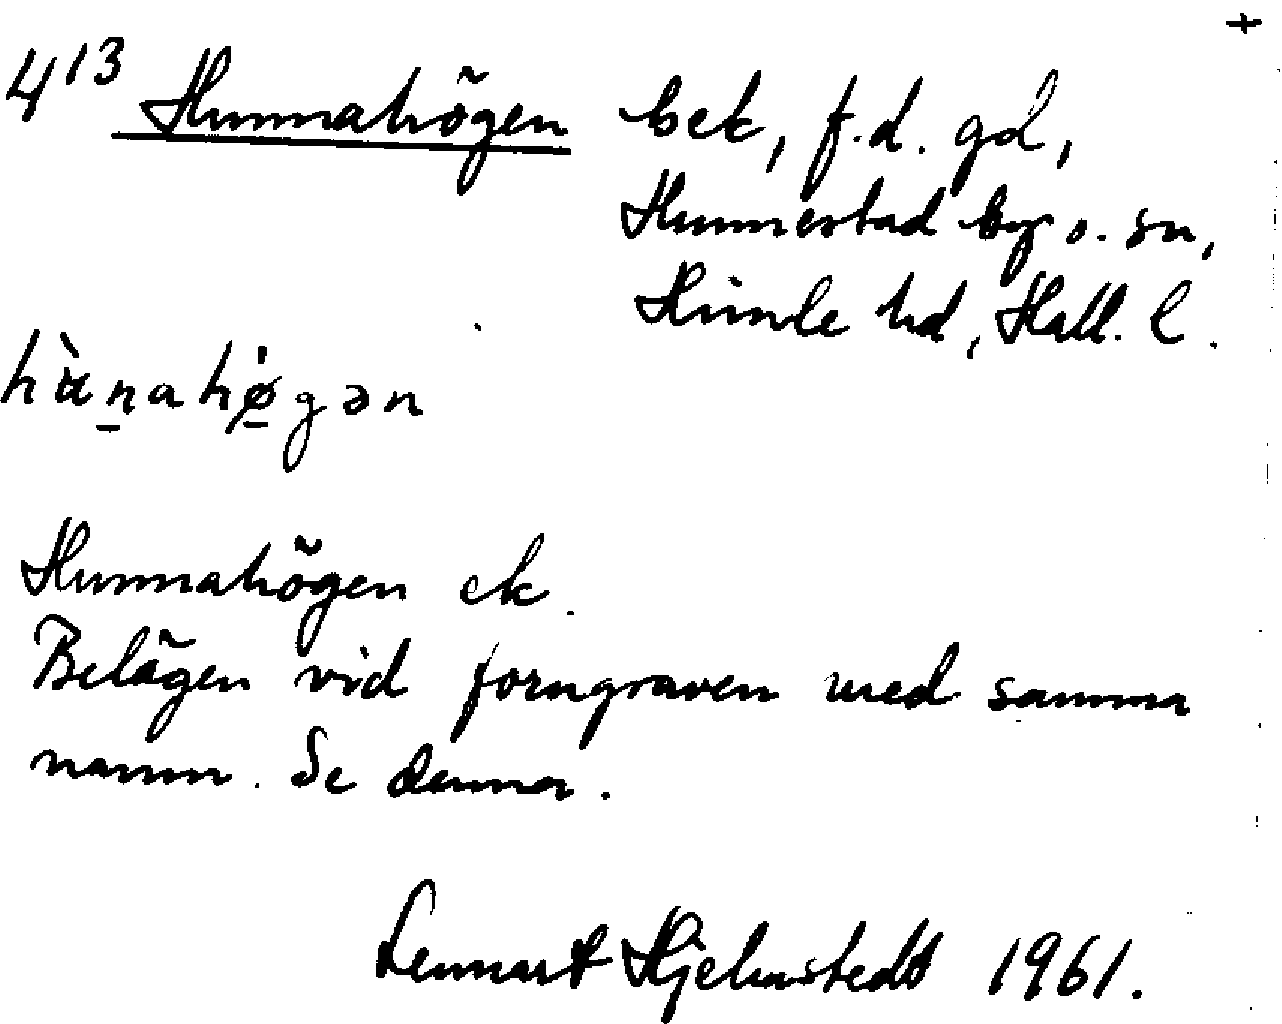 +
4¹³ Hunnahögen bek, f.d. gd,
Hunnestad by o. sn,
Himle hd, Hall. l.
hὰn̠ahø̠gən
Hunnahögen ek.
Belägen vid forngraven med samma
namn. Se denna.
Lennart Hjelmstedt 1961.